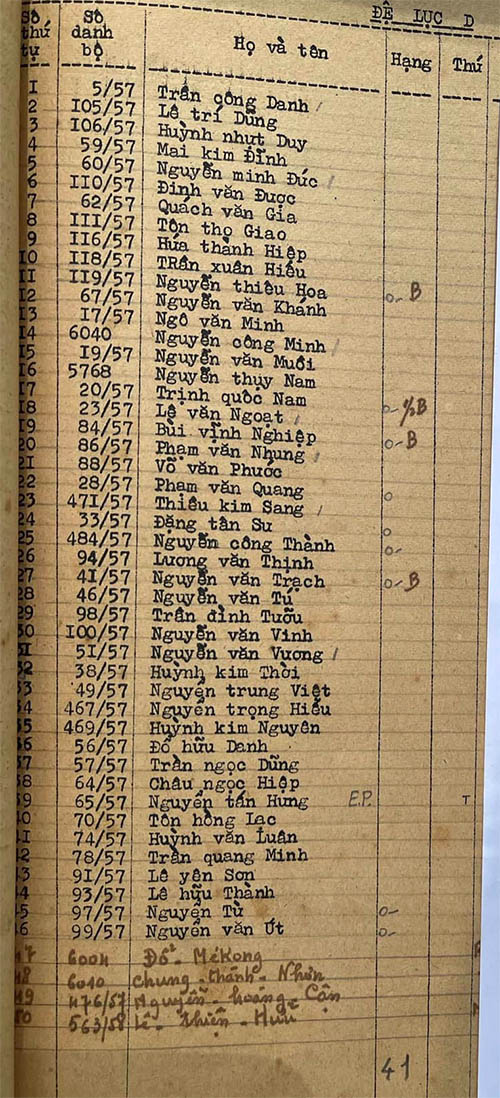 ĐỆ LỤC D
Số thứ tự Số danh bộ Họ và tên Hạng Thứ
1 5/57 Trần công Danh /
2 I05/57 Lê trí Dũng
3 I06/57 Huỳnh nhựt Duy
4 59/57 Mai kim Đĩnh
5 60/57 Nguyễn minh Đức /
6 II0/57 Đinh văn Được
7 62/57 Quách văn Gia
8 III/57 Tôn thọ Giao
9 II6/57 Hứa thành Hiệp
I0 II8/57 TRần xuân Hiếu
II II9/57 Nguyễn thiêu Hoa o- B
I2 67/57 Nguyễn văn Khánh
I3 I7/57 Ngô văn Minh
I4 6040 Nguyễn công Minh /
I5 I9/57 Nguyễn văn Muôi
I6 5768 Nguyễn thụy Nam
I7 20/57 Trịnh quốc Nam
I8 23/57 Lê văn Ngoạt / o- ½B
I9 84/57 Bùi vĩnh Nghiệp
20 86/57 Phạm văn Nhung / o- B
2I 88/57 Võ văn Phước
22 28/57 Phạm văn Quang
23 47I/57 Thiều kim Sang / o
24 33/57 Đặng tân Su
25 484/57 Nguyễn công Thành o
26 94/57 Lương văn Thịnh o-
27 4I/57 Nguyễn văn Trạch o- B
28 46/57 Nguyễn văn Tú
29 98/57 Trần đình Tưỡu
30 I00/57 Nguyễn văn Vinh
3I 5I/57 Nguyễn văn Vương /
32 38/57 Huỳnh kim Thời
33 49/57 Nguyễn trung Việt
34 467/57 Nguyễn trọng Hiếu
35 469/57 Huỳnh kim Nguyên
36 56/57 Đổ hữu Danh
37 57/57 Trần ngọc Dũng
38 64/57 Châu ngọc Hiệp
39 65/57 Nguyễn tấn Hưng E.P. T
40 70/57 Tôn hồng Lạc
4I 74/57 Huỳnh văn Luân
42 78/57 Trần quang Minh
43 9I/57 Lê yên Sơn
44 93/57 Lê hữu Thành
45 97/57 Nguyễn Từ o-
46 99/57 Nguyễn văn Út o-
47 6004 Đổ - MêKong
48 6010 Chung - thành - Nhơn
49 476/57 Nguyễn - hoàng - Cận
50 563/58 Lê - Thiện - Hữu
41